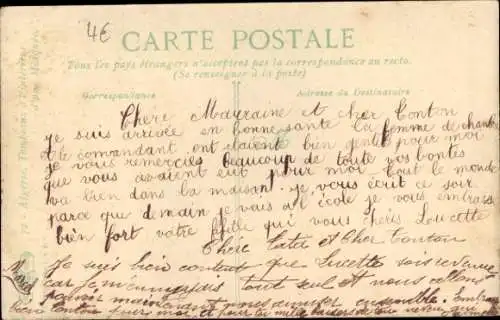 4€
CARTE POSTALE
Tous les pays étrangers n'acceptent pas la correspondance au recto.
(Se renseigner à la poste)
Correspondance
Adresse du Destinataire
Chere Mauraine et cher Tonton
je suis arrivée en bonne santé la femme de chambre
et le comandant ont etaient bien gentils pour moi
je vous remercies beaucoup de toute vos bontés
que vous avaient eut pour moi tout le monde
va bien dans la maison je vous écrit ce soir
parce que demain je vais al école je vous embrasse
bien fort votre fille qui vous cheris Loucette
Chere tata et Cher tonton
Je suis bien content que Lucette sois revenue
car je m'ennuyais tout seul et nous allons
pouvoir maintenant nous amuser ensemble.
bien tonton pour moi et pour tu mille baisers de ton neveu qui